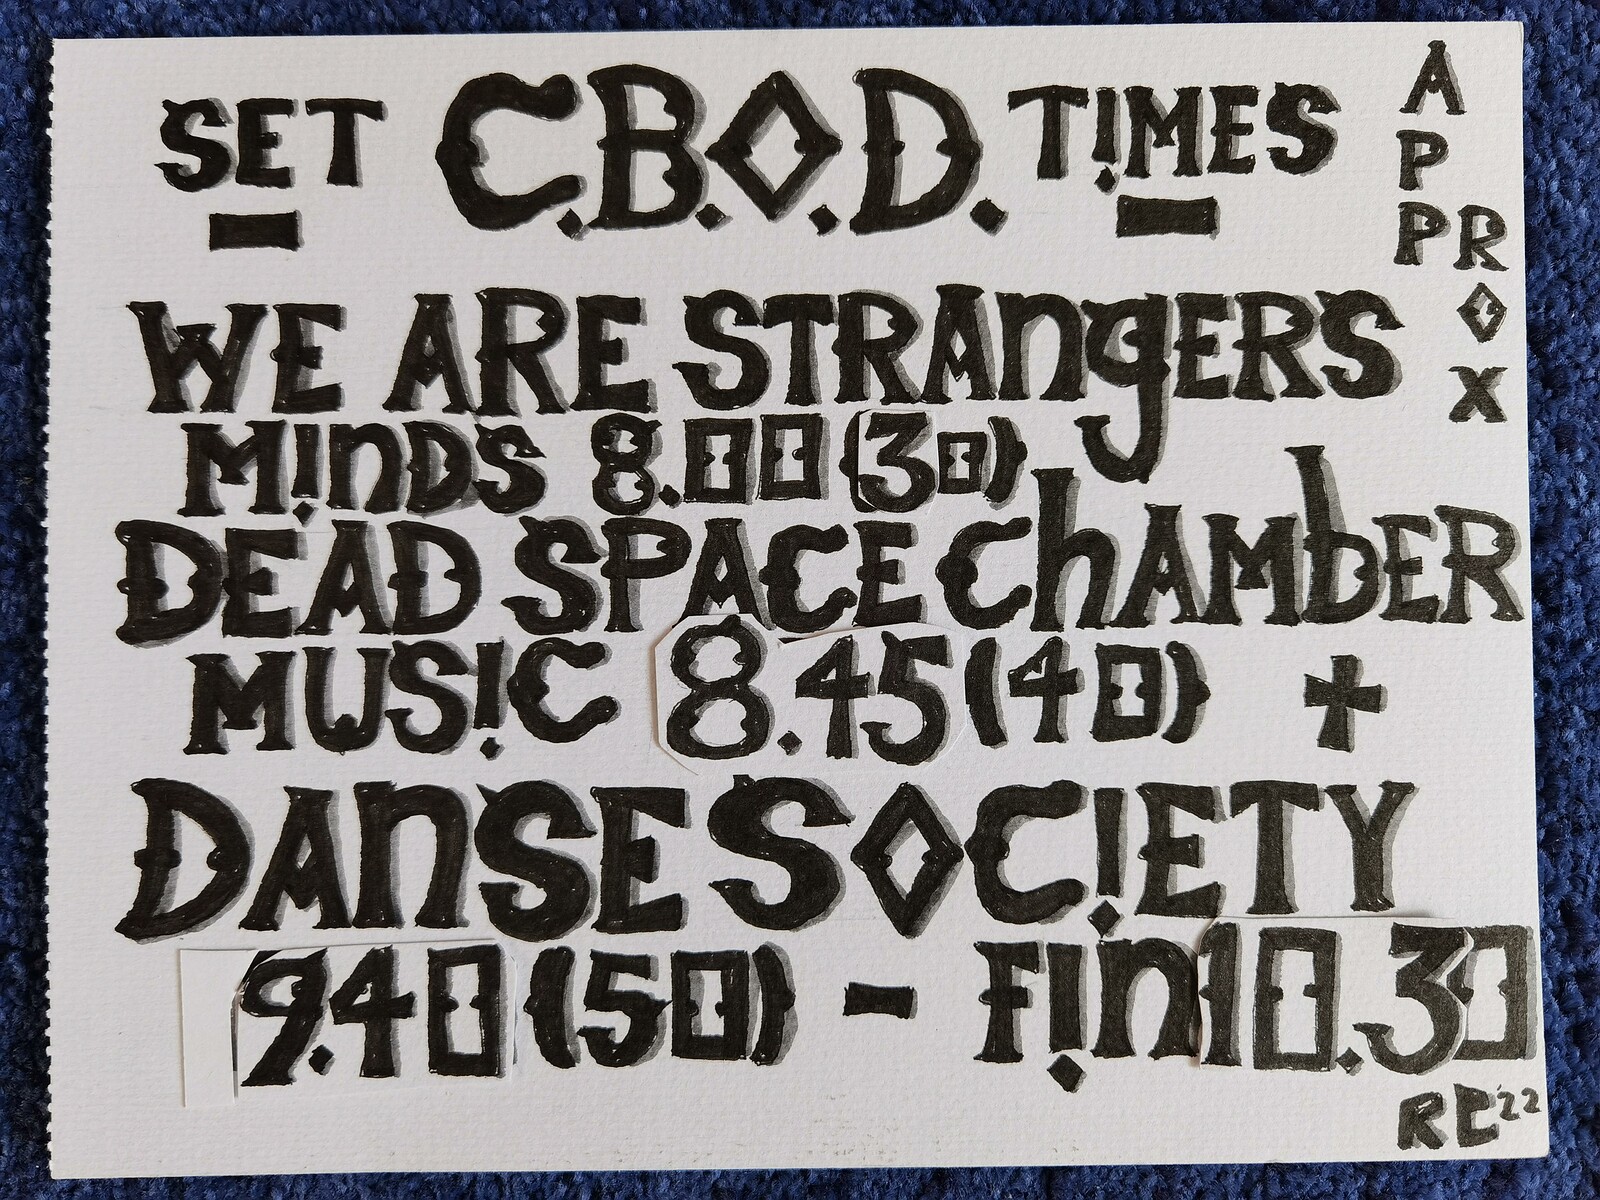 SET C.B.O.D. TIMES
APPROX
WE ARE STRANGERS
MINDS 8.00 (30)
DEAD SPACE CHAMBER
MUSIC 8.45 (40) †
DANSE SOCIETY
9.40 (50) - FIN 10.30
RC '22